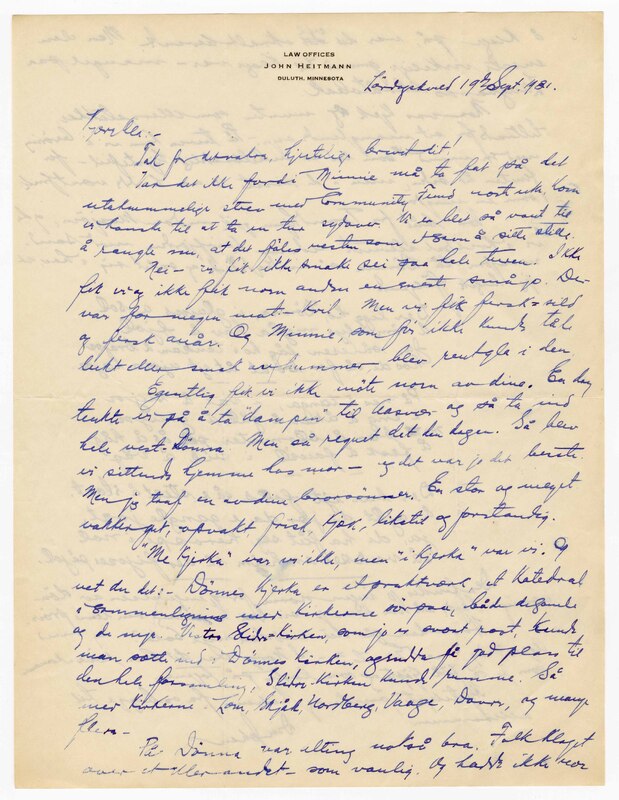 LAW OFFICES
JOHN HEITMANN
DULUTH, MINNESOTA
Lördagskveld 19de Sept. 1931.
Kjære
Tak for det vakra, hjertelige brevet dit!
Var det ikke fordi Minnie må ta fat på det
utakknemmelige strev med Community Fund
vi kanske til at ta en tur sydover. Vi er blet så vant til
å rangle nu, at det föles næsten som et savn å sitte stille.
Nei - vi fik ikke smake sei paa hele turen. Ikke
fik vi og ikke fik noen andre en eneste småsei. Der
var for megen mat - Kril. Men vi fik fersk-sild
og fersk auår. Og Minnie, som för ikke kunde tåle
lukt eller smak av hummer blev rent gla i den.
Egentlig fik vi ikke möte noen av dine. En dag
tenkte vi på å ta "dampen" til Aasvær og så ta ind
hele vest-Dönna. Men så regnet det den dagen. Så blev
vi sittende hjemme hos mor - og det var jo det beste.
Men jeg traf en av dine brorsönner. En stor og meget
vakker gut, opvakt frisk kjæk, liketil og forstandig.
"Me Kjerka" var vi ikke, men "i Kjerka" var vi. Og
vet du det: - Dönnes Kjerka er et praktverk, et Katedral
i sammenligning med Kirkerne sörpaa, både de gamle
og de nye. Vestre Slidre-Kirken, som jo er svært post, kunde
man sette ind i Dönnes Kirken, og endda få god plass til
den hele forsamling, Slidre-Kirken kunde rumme. Så
med Kirkerne i Lom, Skjåk, Nordberg, Vaage, Dovre, og mange
flere -
På Dönna var alting nokså bra. Folk klaget
over et eller andet - som vanlig. Og hadde ikke